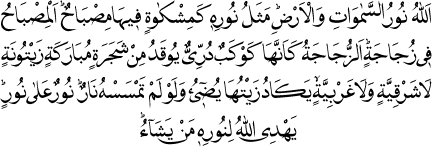 اَللّٰهُ نُوْرُ السَّمٰوٰتِ وَالْاَرْضِ ؕ مَثَلُ نُوْرِهٖ كَمِشْكٰوةٍ فِيْهَا مِصْبَاحٌ ؕ اَلْمِصْبَاحُ
فِىْ زُجَاجَةٍ ؕ اَلزُّجَاجَةُ كَاَنَّهَا كَوْكَبٌ دُرِّىٌّ يُّوْقَدُ مِنْ شَجَرَةٍ مُّبٰرَكَةٍ زَيْتُوْنَةٍ
لَّا شَرْقِيَّةٍ وَّلَا غَرْبِيَّةٍ ۙ يَّكَادُ زَيْتُهَا يُضِىْٓءُ وَلَوْ لَمْ تَمْسَسْهُ نَارٌ ؕ نُوْرٌ عَلٰى نُوْرٍ ؕ
يَهْدِى اللّٰهُ لِنُوْرِهٖ مَنْ يَّشَآءُ ؕ